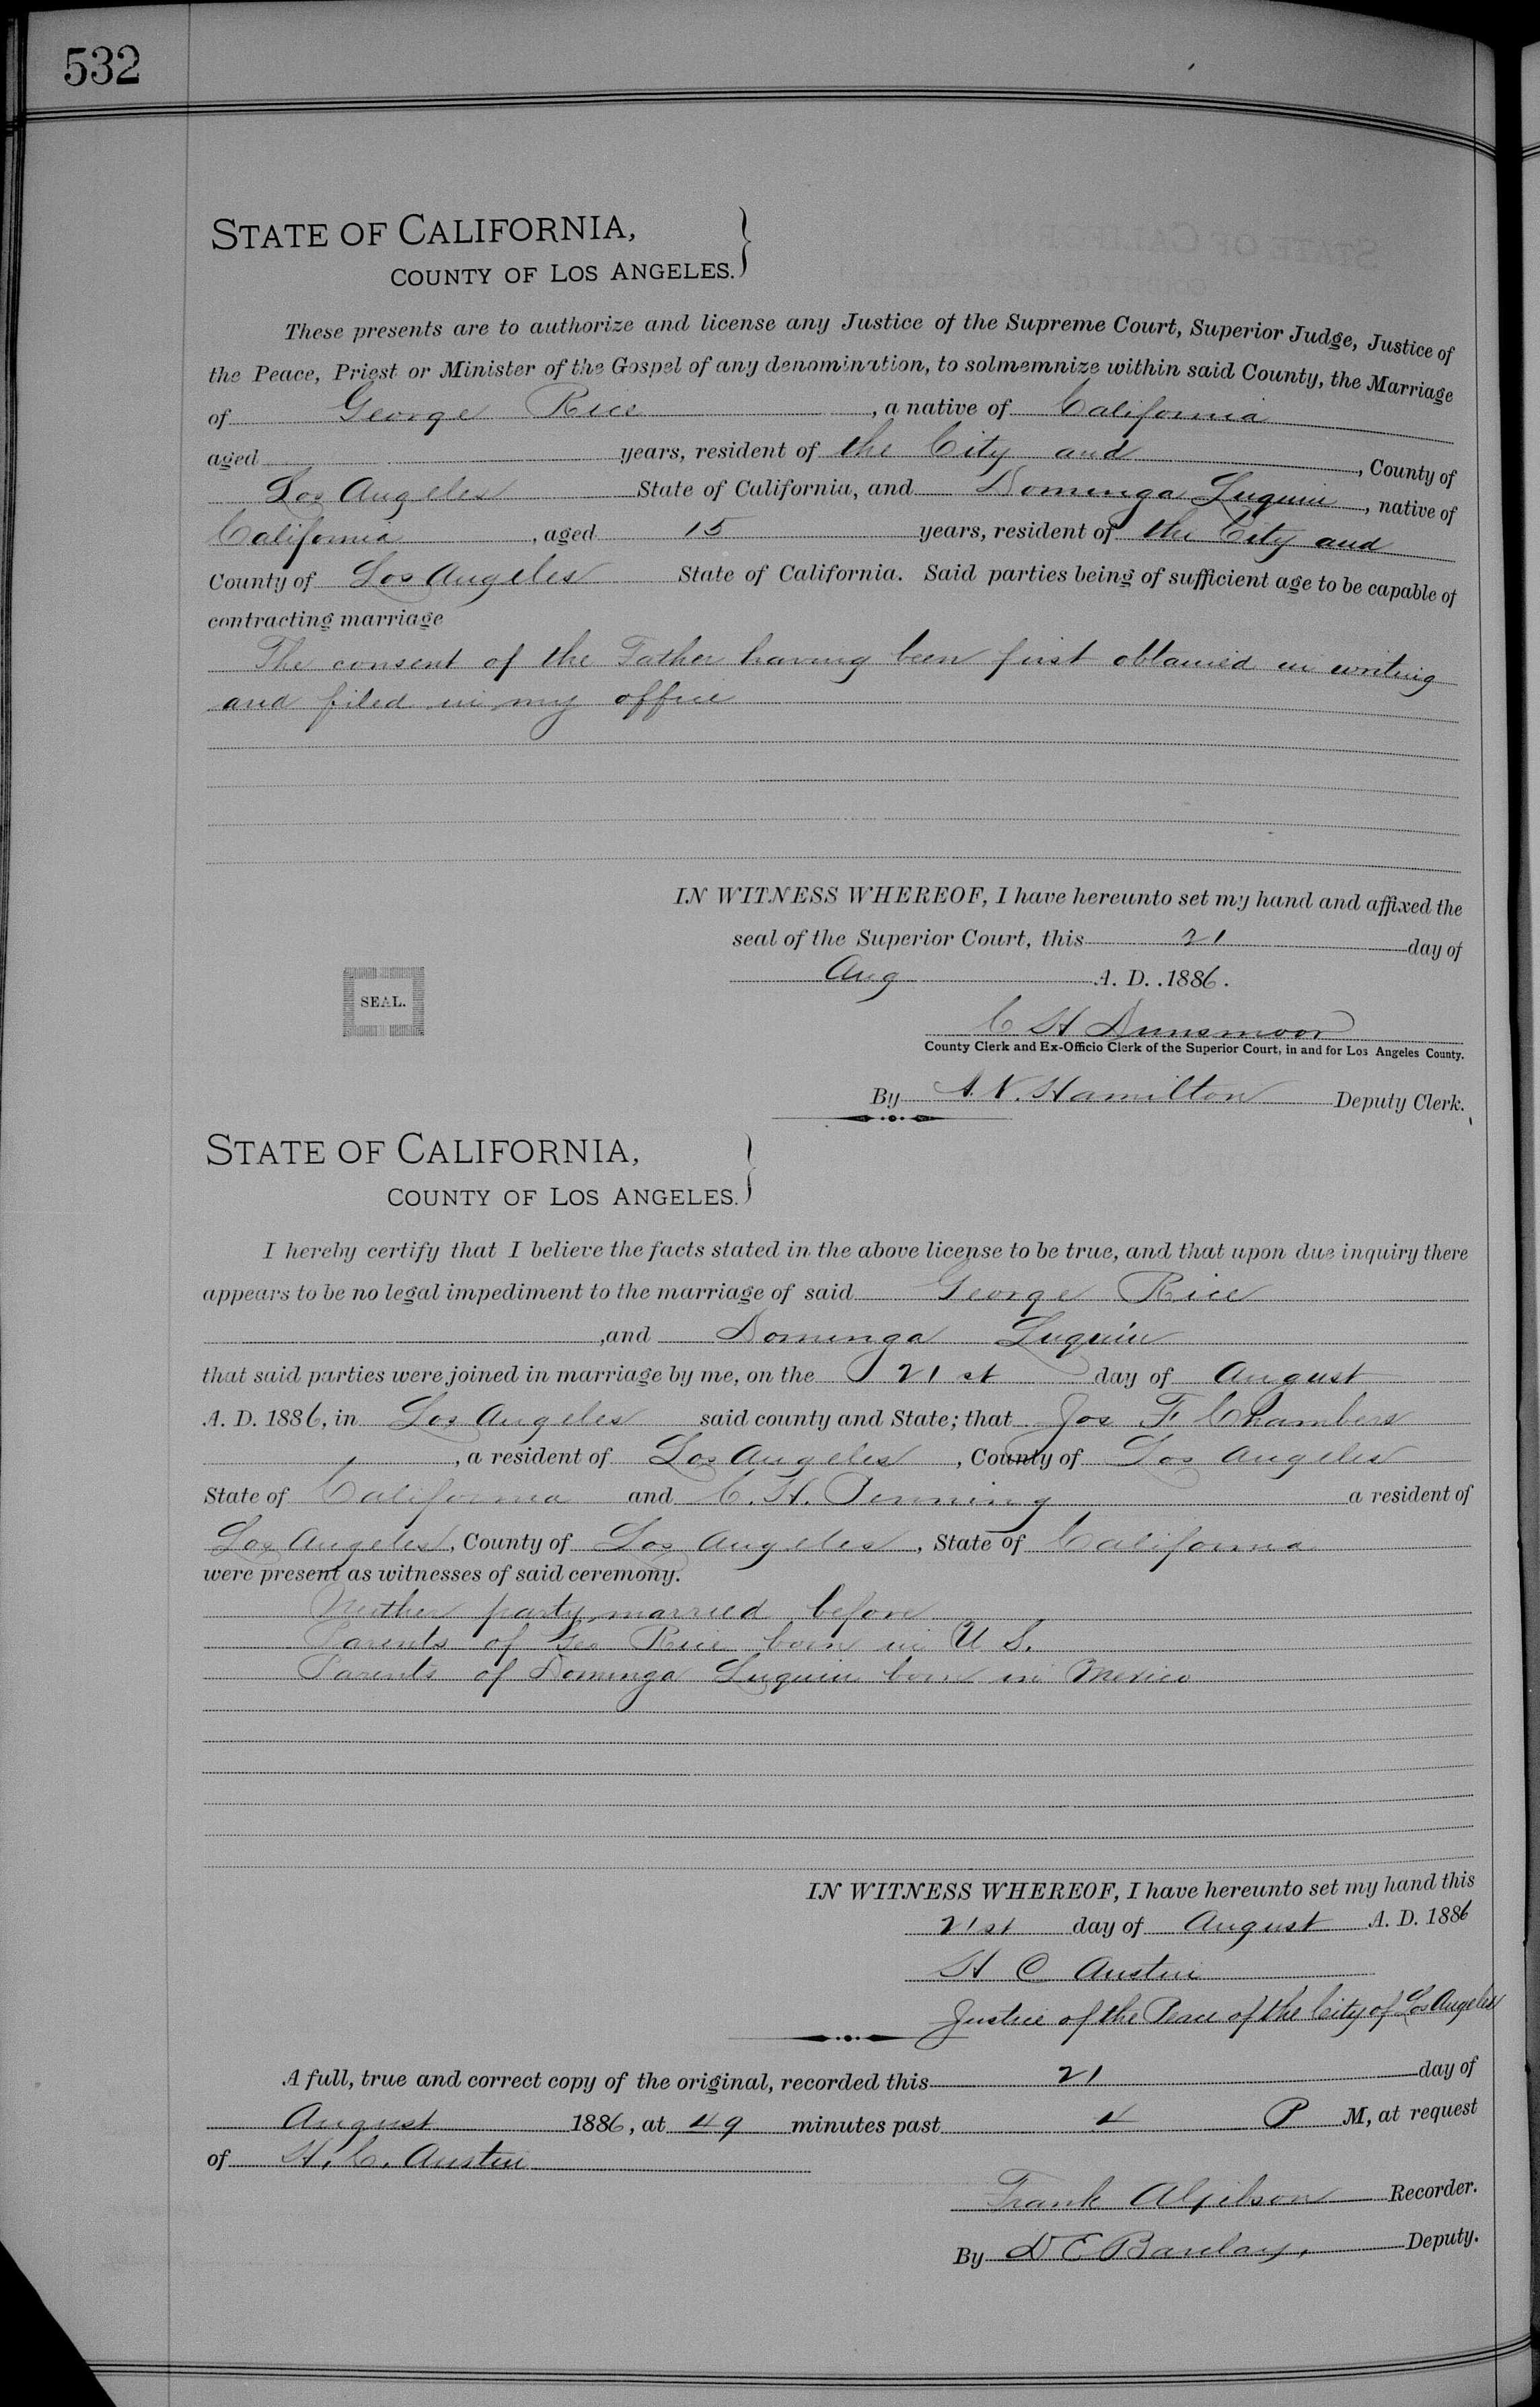 532
STATE OF CALIFORNIA,
COUNTY OF LOS ANGELES.
These presents are to authorize and license any Justice of the Supreme Court, Superior Judge, Justice of
the Peace, Priest or Minister of the Gospel of any denomination, to solmemnize within said County, the Marriage
of George Rice, a native of California
aged years, resident of the City and, County of
Los Angeles State of California, and Dominga Luquin, native of
California, aged 15 years, resident of the City and
County of Los Angeles State of California. Said parties being of sufficient age to be capable of
contracting marriage
The consent of the Father having been first obtained in writing
and filed in my office
IN WITNESS WHEREOF, I have hereunto set my hand and affixed the
seal of the Superior Court, this 21 day of
Aug A. D. 1886.
SEAL.
C H Dunsmoor
County Clerk and Ex-Officio Clerk of the Superior Court, in and for Los Angeles County.
By Hamilton Deputy Clerk.
STATE OF CALIFORNIA,
COUNTY OF LOS ANGELES.
I hereby certify that I believe the facts stated in the above license to be true, and that upon due inquiry there
appears to be no legal impediment to the marriage of said George Rice
,and Dominga Luquin
that said parties were joined in marriage by me, on the 21st day of August
A. D. 1886, in Los Angeles said county and State; that Jos F Chambers
, a resident of Los Angeles, County of Los Angeles
State of California and C. H. Penning a resident of
Los Angeles, County of Los Angeles, State of California
were present as witnesses of said ceremony.
Neither party married before
Parents of Geo Rice born in U S.
Parents of Dominga Luquin born in Mexico
IN WITNESS WHEREOF, I have hereunto set my hand this
21st day of August A. D. 1886
H C Austin
Justice of the Peace of the City of Los Angeles
A full, true and correct copy of the original, recorded this 21 day of
August 1886, at 49 minutes past 4 P M, at request
of H. C. Austin
Frank A Gibson Recorder.
By D E Barclay, Deputy.